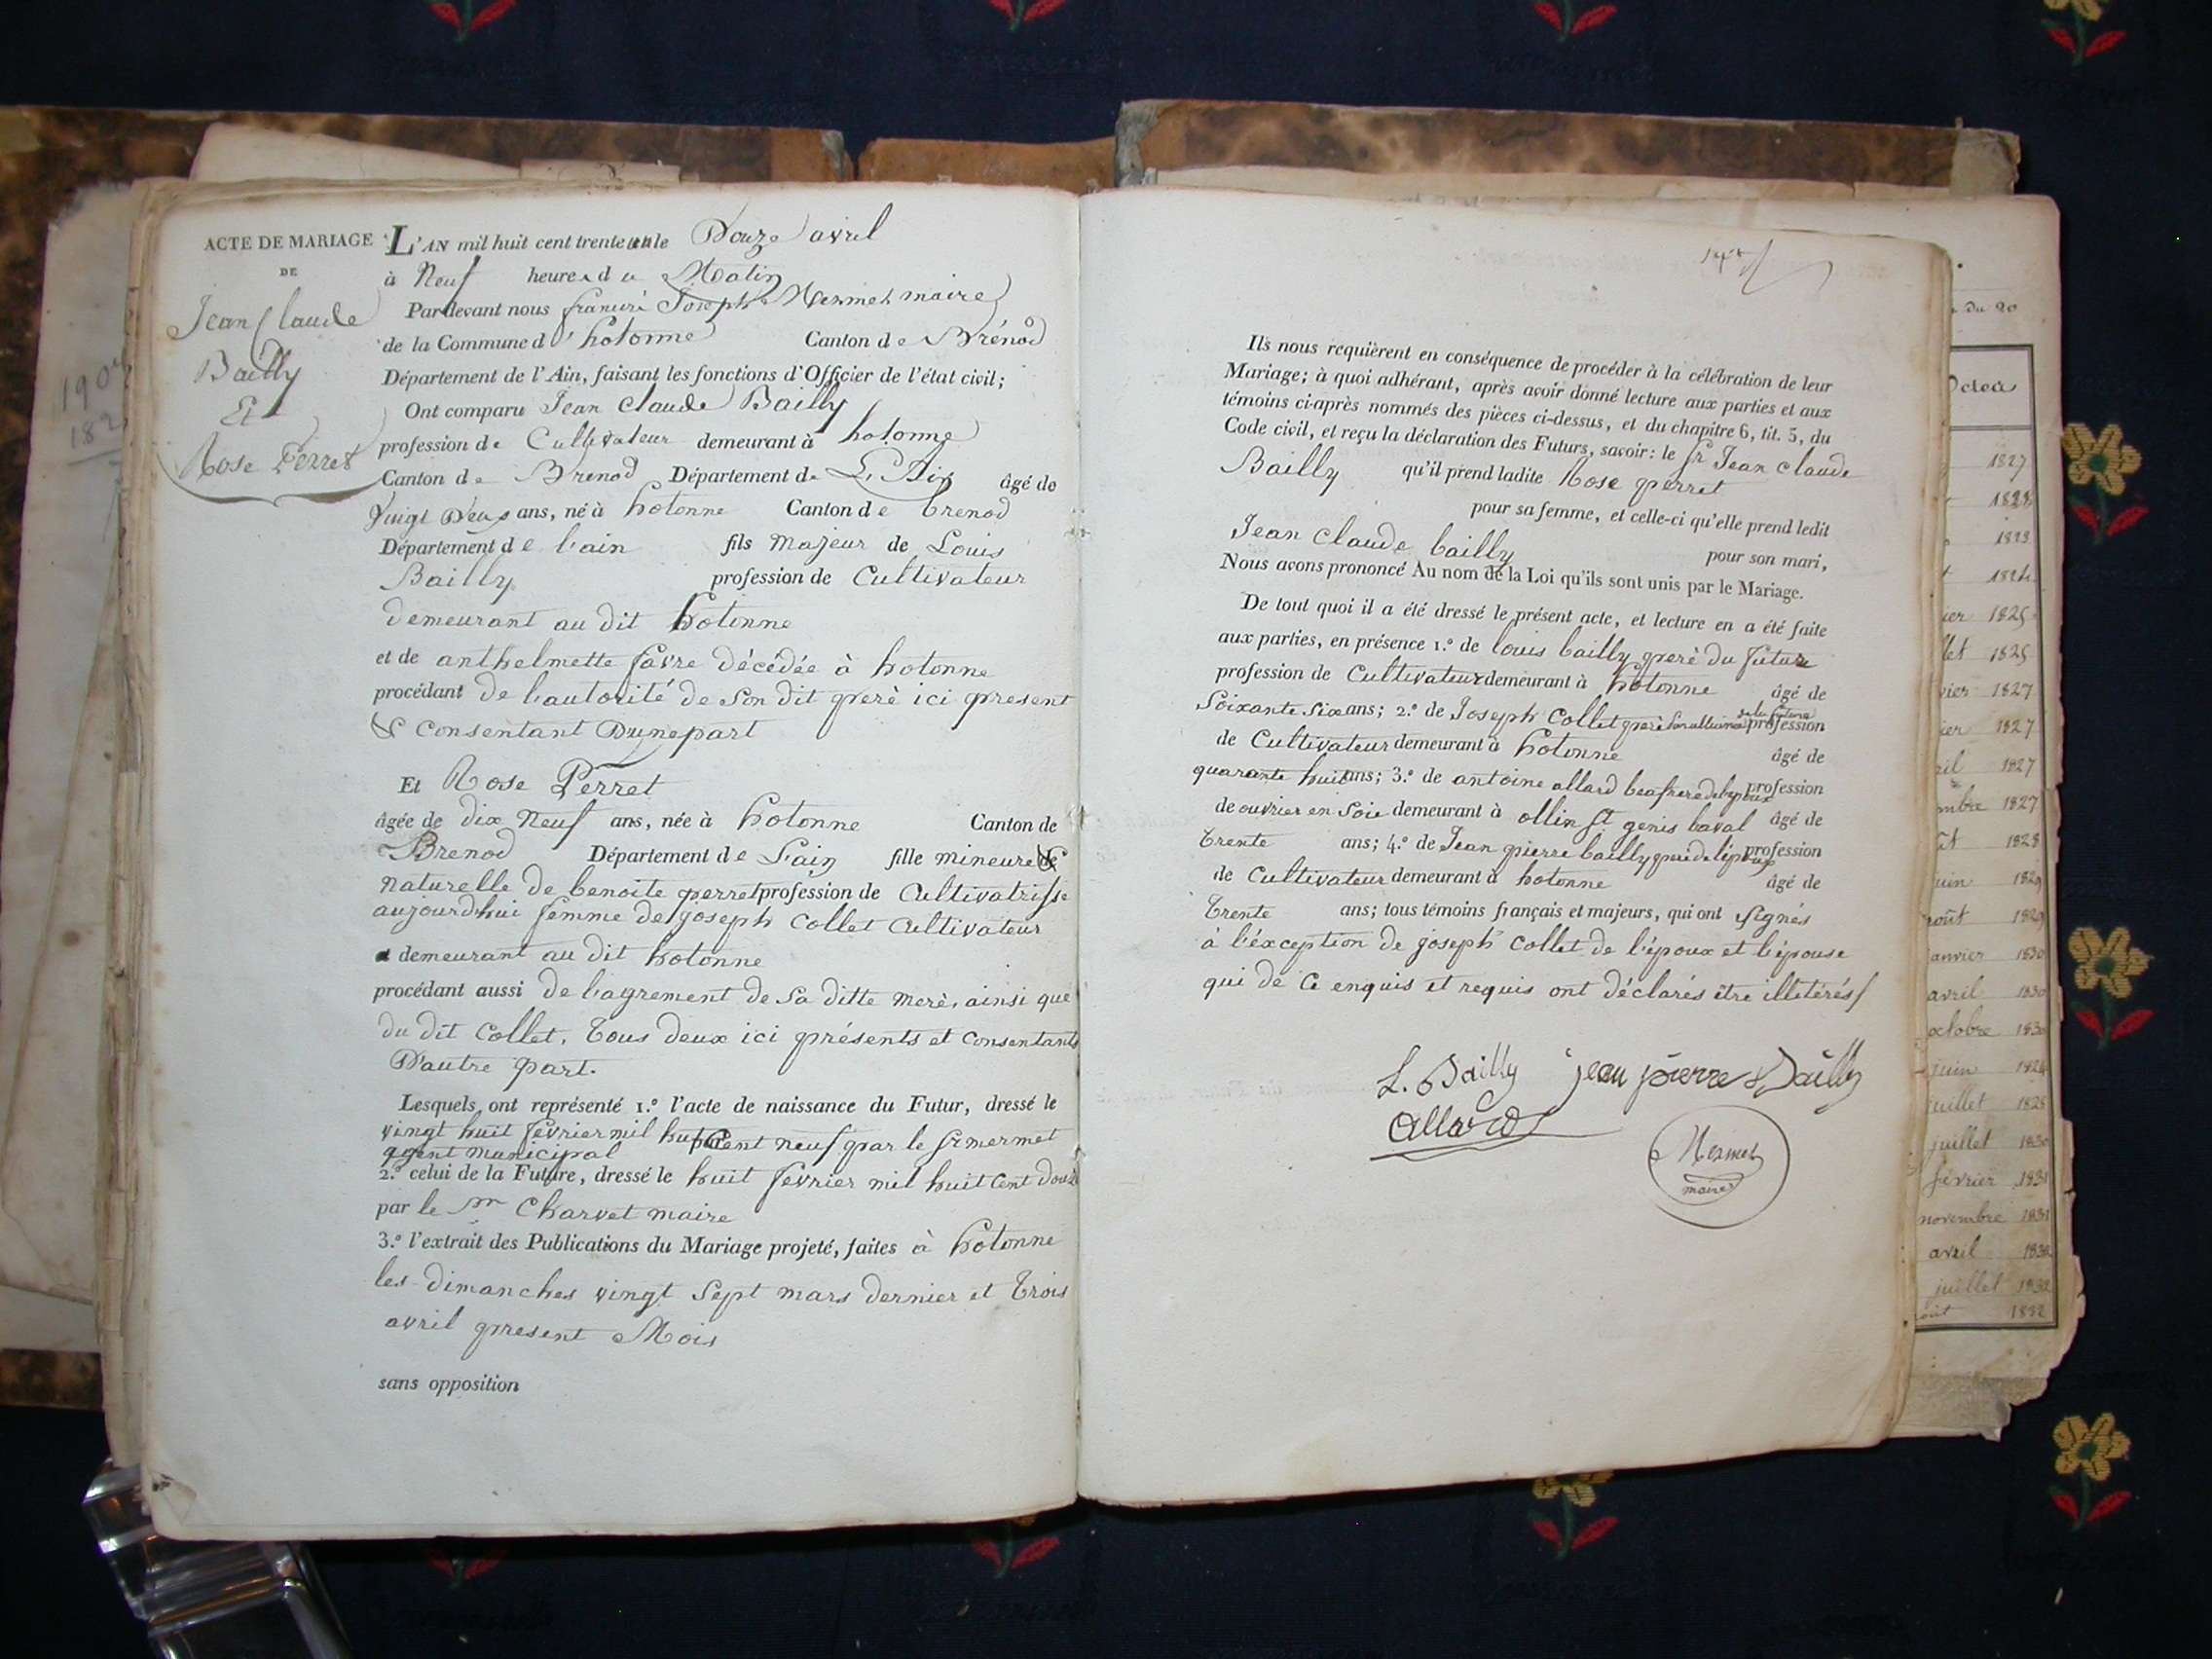 ACTE DE MARIAGE
DE
Jean Claude
Bailly
Et
Rose Perret
L'AN mil huit cent trente un le Douze avril
à Neuf heures du Matin
Pardevant nous Joseph Mermet maire
de la Commune d'hotonne Canton de Brénod
Département de l'Ain, faisant les fonctions d'Officier de l'état civil;
Ont comparu Jean Claude Bailly
profession de Cultivateur demeurant à hotonne
Canton de Brenod Département de L'Ain âgé de
Vuigt Deux ans, né à hotonne Canton de brenod
Département de l'ain fils majeur de Louis
Bailly profession de Cultivateur
demeurant au dit hotonne
et de anthelmette favre décédée à hotonne
procédant de l'autorité de Son dit perè ici present
& Consentant D'unepart
Et Rose Perret
âgée de dix Neuf ans, née à hotonne Canton de
Brenod Département de L'ain fille mineure &
naturelle de benoite perret profession de Cultivatrisse
aujourd'hui femme de joseph Collet Cultivateur
demeurant au dit hotonne
procédant aussi de l'agrement de Sa ditte merè, ainsi que
du dit Collet, tous deux ici présents et Consentants
D'autre part.
Lesquels ont représenté 1.º l'acte de naissance du Futur, dressé le
vingt huit fevrier mil huit Cent neuf par le Sr mermet
agent municipal
2.º celui de la Future, dressé le huit fevrier mil huit Cent douze
par le Sr Charvet maire
3.º l'extrait des Publications du Mariage projeté, faites à hotonne
les dimanches vingt Sept mars dernier et trois
avril present Mois
sans opposition
Ils nous requièrent en conséquence de procéder à la célébration de leur
Mariage; à quoi adhérant, après avoir donné lecture aux parties et aux
témoins ci-après nommés des pièces ci-dessus, et du chapitre 6, tit. 5, du
Code civil, et reçu la déclaration des Futurs, savoir: le Sr Jean Claude
Bailly qu'il prend ladite Rose perret
pour sa femme, et celle-ci qu'elle prend ledit
Jean Claude bailly pour son mari,
Nous avons prononcé Au nom de la Loi qu'ils sont unis par le Mariage.
De tout quoi il a été dressé le présent acte, et lecture en a été faite
aux parties, en présence 1.º de louis bailly perè du futur
profession de Cultivateur demeurant à hotonne âgé de
Soixante Six ans; 2.º de Joseph Collet perè de la future profession
de Cultivateur demeurant à hotonne âgé de
quarante huit ans; 3.º de antoine allard beafrere de l'epoux profession
de ouvrier en Soie demeurant à ollin St genis laval âgé de
trente ans; 4.º de Jean pierre bailly de l'époux profession
de Cultivateur demeurant à hotonne âgé de
trente ans; tous témoins français et majeurs, qui ont Signés
à l'éxception de joseph Collet de l'époux et l'épouse
qui de Ce enquis et requis ont déclarés être illitérés
L. Bailly jean pierre Bailly
Allard
Mermet
maire
1904
du 20
1827
1828
1823
1824
1825
1825
1827
1827
1827
1827
1828
juin 1829
août 1829
janvier 1830
avril 1830
octobre 1830
juin 1824
juillet 1825
juillet 1830
février 1831
novembre 1831
avril 1832
juillet 1832
août 1832